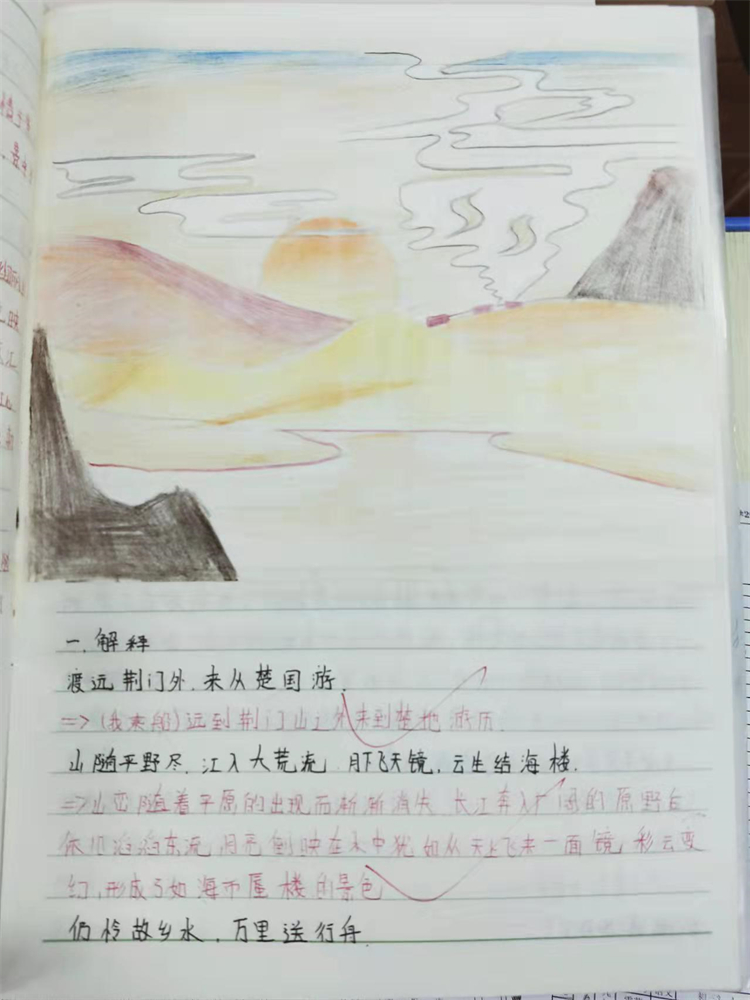 一.解释
渡远荆门外.来从楚国游.
=>(我乘船)远到荆门山之外来到楚地游历.
山随平野尽.江入大荒流.月下飞天镜,云生结海楼.
=>山峦随着平原的出现而渐渐消失.长江奔入广阔的原野
滔滔东流,月亮倒映在水中犹如从天上飞来一面镜,彩云变
幻,形成了如海市蜃楼的景色
仍怜故乡水,万里送行舟.